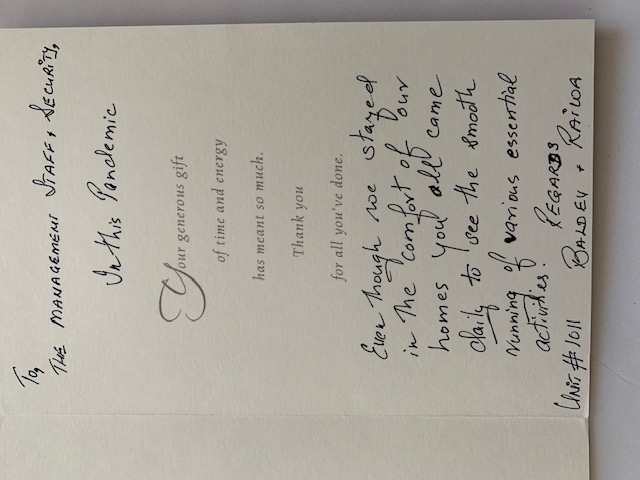 To,
THE MANAGEMENT STAFF & SECURITY,
In this Pandemic
Your generous gift
of time and energy
has meant so much.
Thank you
for all you've done.
Even though we stayed
in the comfort of our
homes you all came
daily to see the smooth
running of various essential
activities.
REGARDS
Unit # 1011 BALDEV + RAIWA